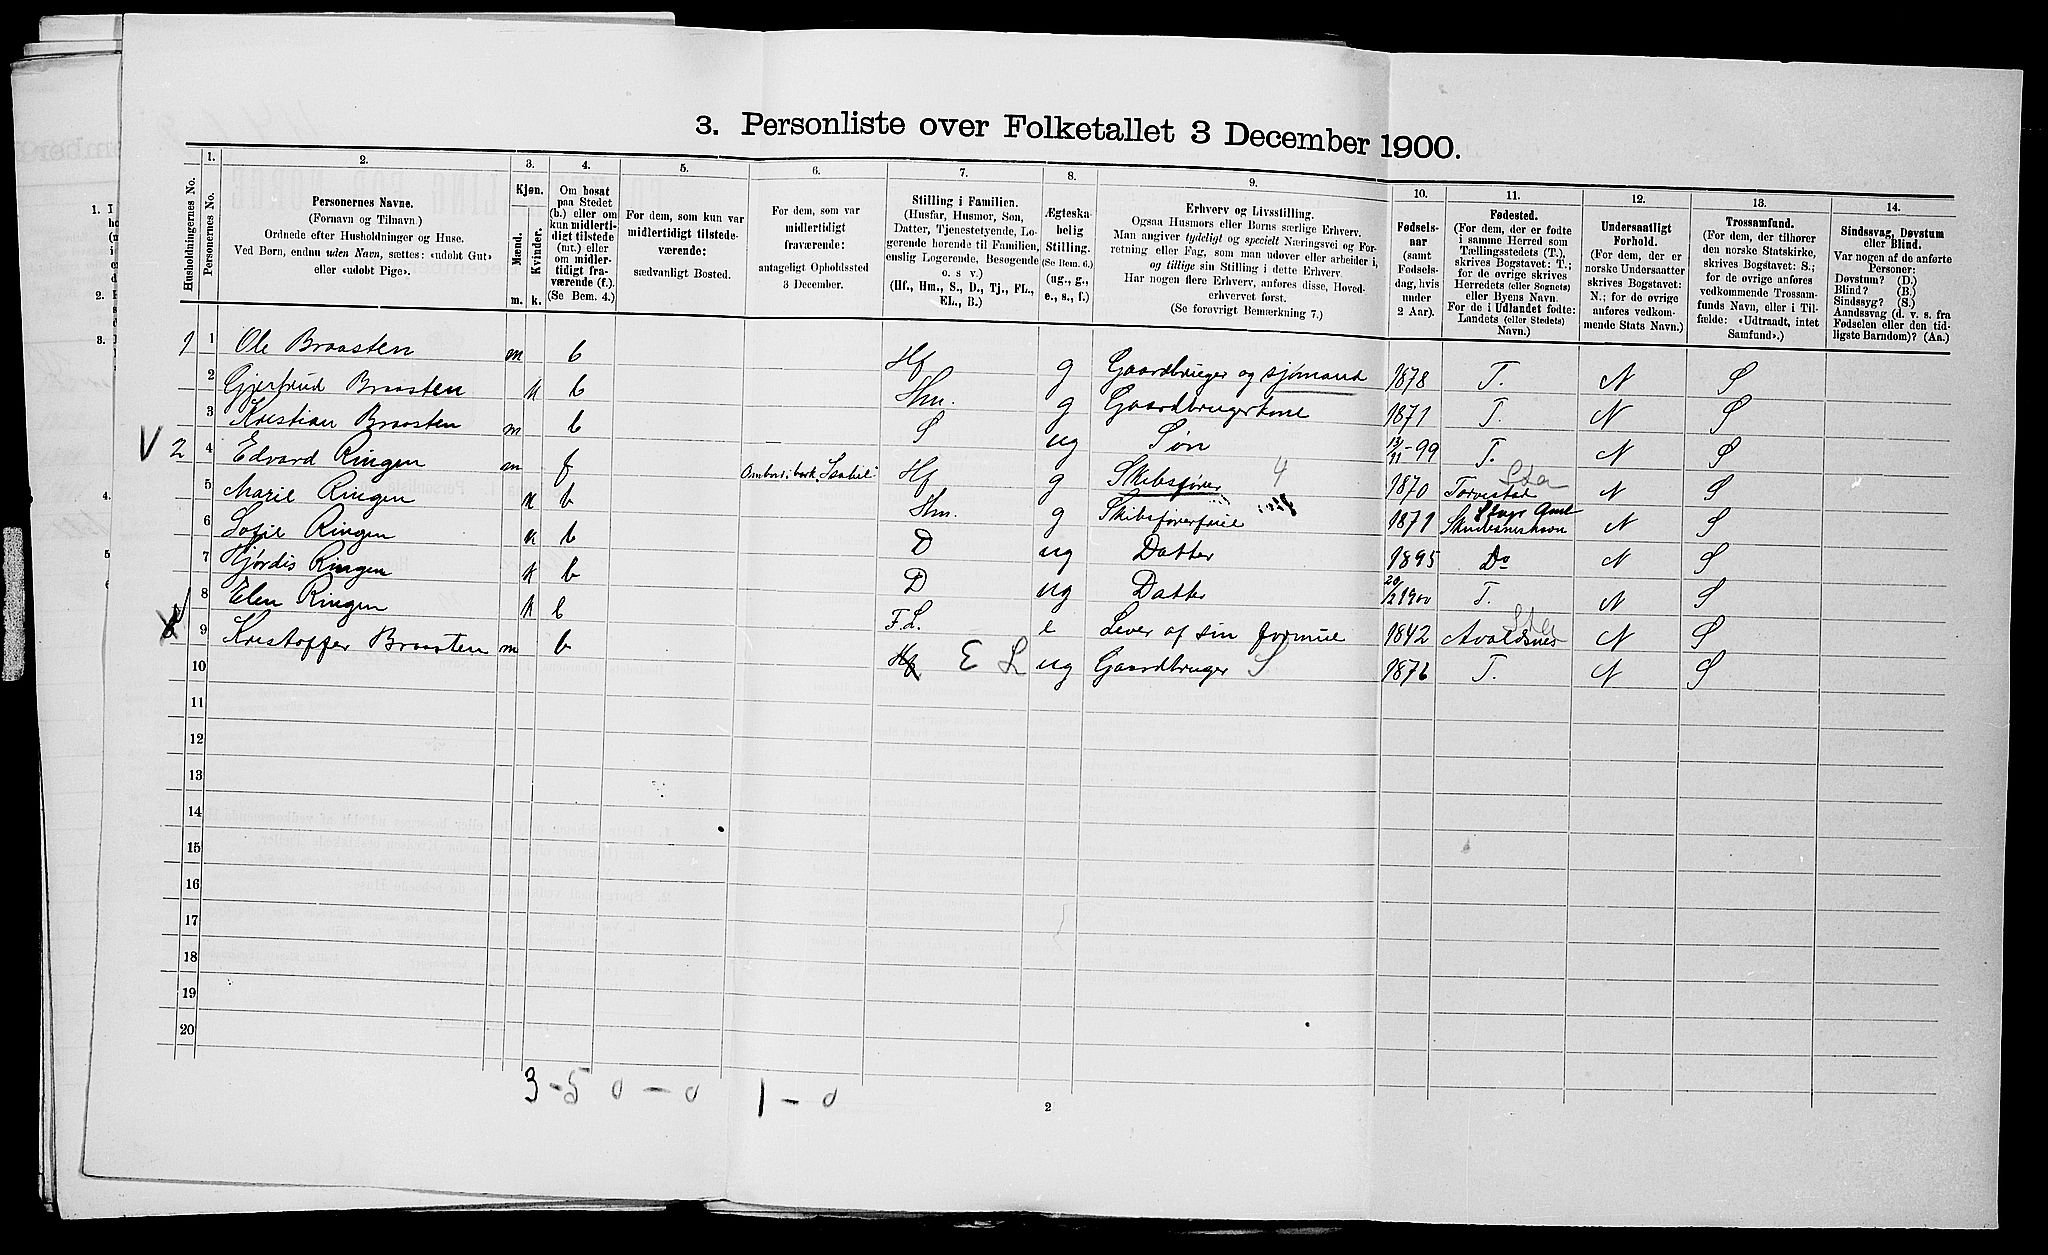 3. Personliste over Folketallet 3 December 1900.
Husholdningernes No.
1. Personernes No.
2. Personernes Navne. (Fornavn og Tilnavn.) Ordnede efter Husholdninger og Huse. Ved Børn, endnu uden Navn, sættes: «udobt Gut» eller «udobt Pige».
3. Kjøn. Mænd. m. Kvinder. k.
4. Om bosat paa Stedet (b.) eller om kun midlertidigt tilstede (mt.) eller om midlertidigt fraværende (f.). (Se Bem. 4.)
5. For dem, som kun var midlertidigt tilstedeværende: sædvanligt Bosted.
6. For dem, som var midlertidigt fraværende: antageligt Opholdssted 3 December.
7. Stilling i Familien. (Husfar, Husmor, Søn, Datter, Tjenestetyende, Logerende hørende til Familien, enslig Logerende, Besøgende o. s v.) (Hf., Hm., S., D., Tj., FL., EL., B.)
8. Ægteskabelig Stilling. (Se Bem. 6.) (ug., g., e., s., f.)
9. Erhverv og Livsstilling. Ogsaa Husmors eller Børns særlige Erhverv. Man angiver tydeligt og specielt Næringsvei og Forretning eller Fag, som man udøver eller arbeider i, og tillige sin Stilling i dette Erhverv. Har nogen flere Erhverv, anføres disse, Hovederhvervet først. (Se forøvrigt Bemærkning 7.)
10. Fødselsaar (samt Fødselsdag, hvis under 2 Aar).
11. Fødested. (For dem, der er fødte i samme Herred som Tællingsstedets (T.), skrives Bogstavet: T.; for de øvrige skrives Herredets (eller Sognets) eller Byens Navn. For de i Udlandet fødte: Landets (eller Stedets) Navn.)
12. Undersaatligt Forhold. (For dem, der er norske Undersaatter skrives Bogstavet: N.; for de øvrige anføres vedkommende Stats Navn.)
13. Trossamfund. (For dem, der tilhører den norske Statskirke, skrives Bogstavet: S.; for de øvrige anføres vedkommende Trossamfunds Navn, eller i Tilfælde: «Udtraadt, intet Samfund».)
14. Sindssvag, Døvstum eller Blind. Var nogen af de anførte Personer: Døvstum? (D.) Blind? (B.) Sindssyg? (S.) Aandssvag (d. v. s. fra Fødselen eller den tidligste Barndom)? (Aa.)
1 1 Ole Braasten m b Hf g Gaardbruger og sjømand 1878 T. N S
2 Gjertrud Braasten k b Hm. g Gaardbrugerkone 1871 T. N S
3 Kristian Braasten m b S ug Søn 13/11-99 T. N S
V 2 4 Edvard Ringen m f Ombord i bark "Isabel" Hf g Skibsfører 4 1870 Torvestad Sta N S
5 Marie Ringen k b Hm. g Skibsførerfrue 1871 Skudesneshavn N S
6 Sofie Ringen k b D ug Datter 1895 Do N S
7 Hjørdis Ringen k b D ug Datter 20/2 1900 T. N S
8 Elen Ringen k b F.L. e Lever af sin formue 1842 Avaldsnes Sta N S
9 Kristoffer Braasten m b Hf E L ug Gaardbruger S 1876 T. N S
10
11
12
13
14
15
16
17
18
19
20
3-5 0-0 1-0
2